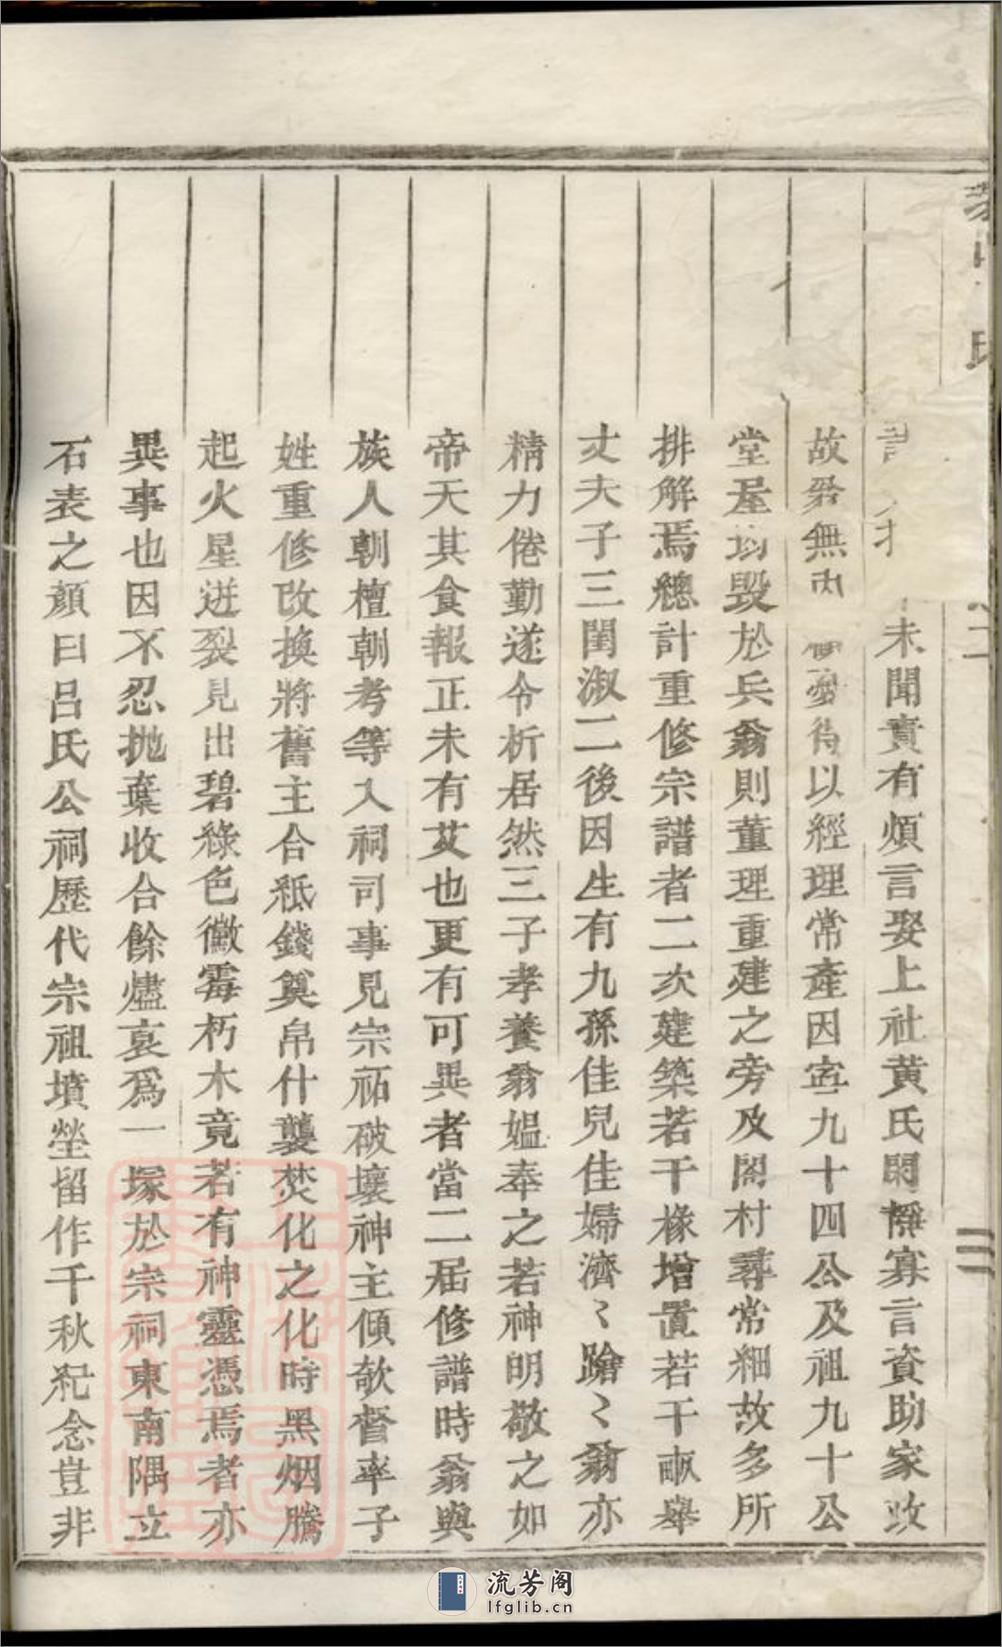 未聞責有煩言娶上社黄氏閑靜寡言資助家政
故 無 以經理常產因寍九十四公及祖九十公
堂屋均毀於兵翁則董理重建之旁及閤村尋常細故多所
排解焉總計重修宗譜者二次建築若干椽增置若干畝舉
丈夫子三閨淑二後因生有九孫佳兒佳婦濟〻蹌〻翁亦
精力倦勤遂令析居然三子孝養翁媪奉之若神明敬之如
帝天其食報正未有艾也更有可異者當二届修譜時翁與
族人朝檀朝考等入祠司事見宗祏破壞神主傾欹督率子
姓重修改換將舊主合紙錢奠帛什襲焚化之化時黑烟騰
起火星迸裂見出碧綠色黴霉朽木竟若有神靈憑焉者亦
異事也因不忍抛棄收合餘燼哀爲一塚於宗祠東南隅立
石表之顏曰呂氏公祠歷代宗祖墳塋留作千秋紀念豈非
流芳阁
lfglib.cn